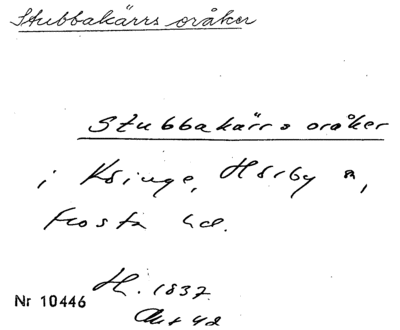 Stubbakärrs oråker
Stubbakärrs oråker
i Kringe, Hörby sn,
Frosta hd.
H. 1837
Nr 10446
Akt 42